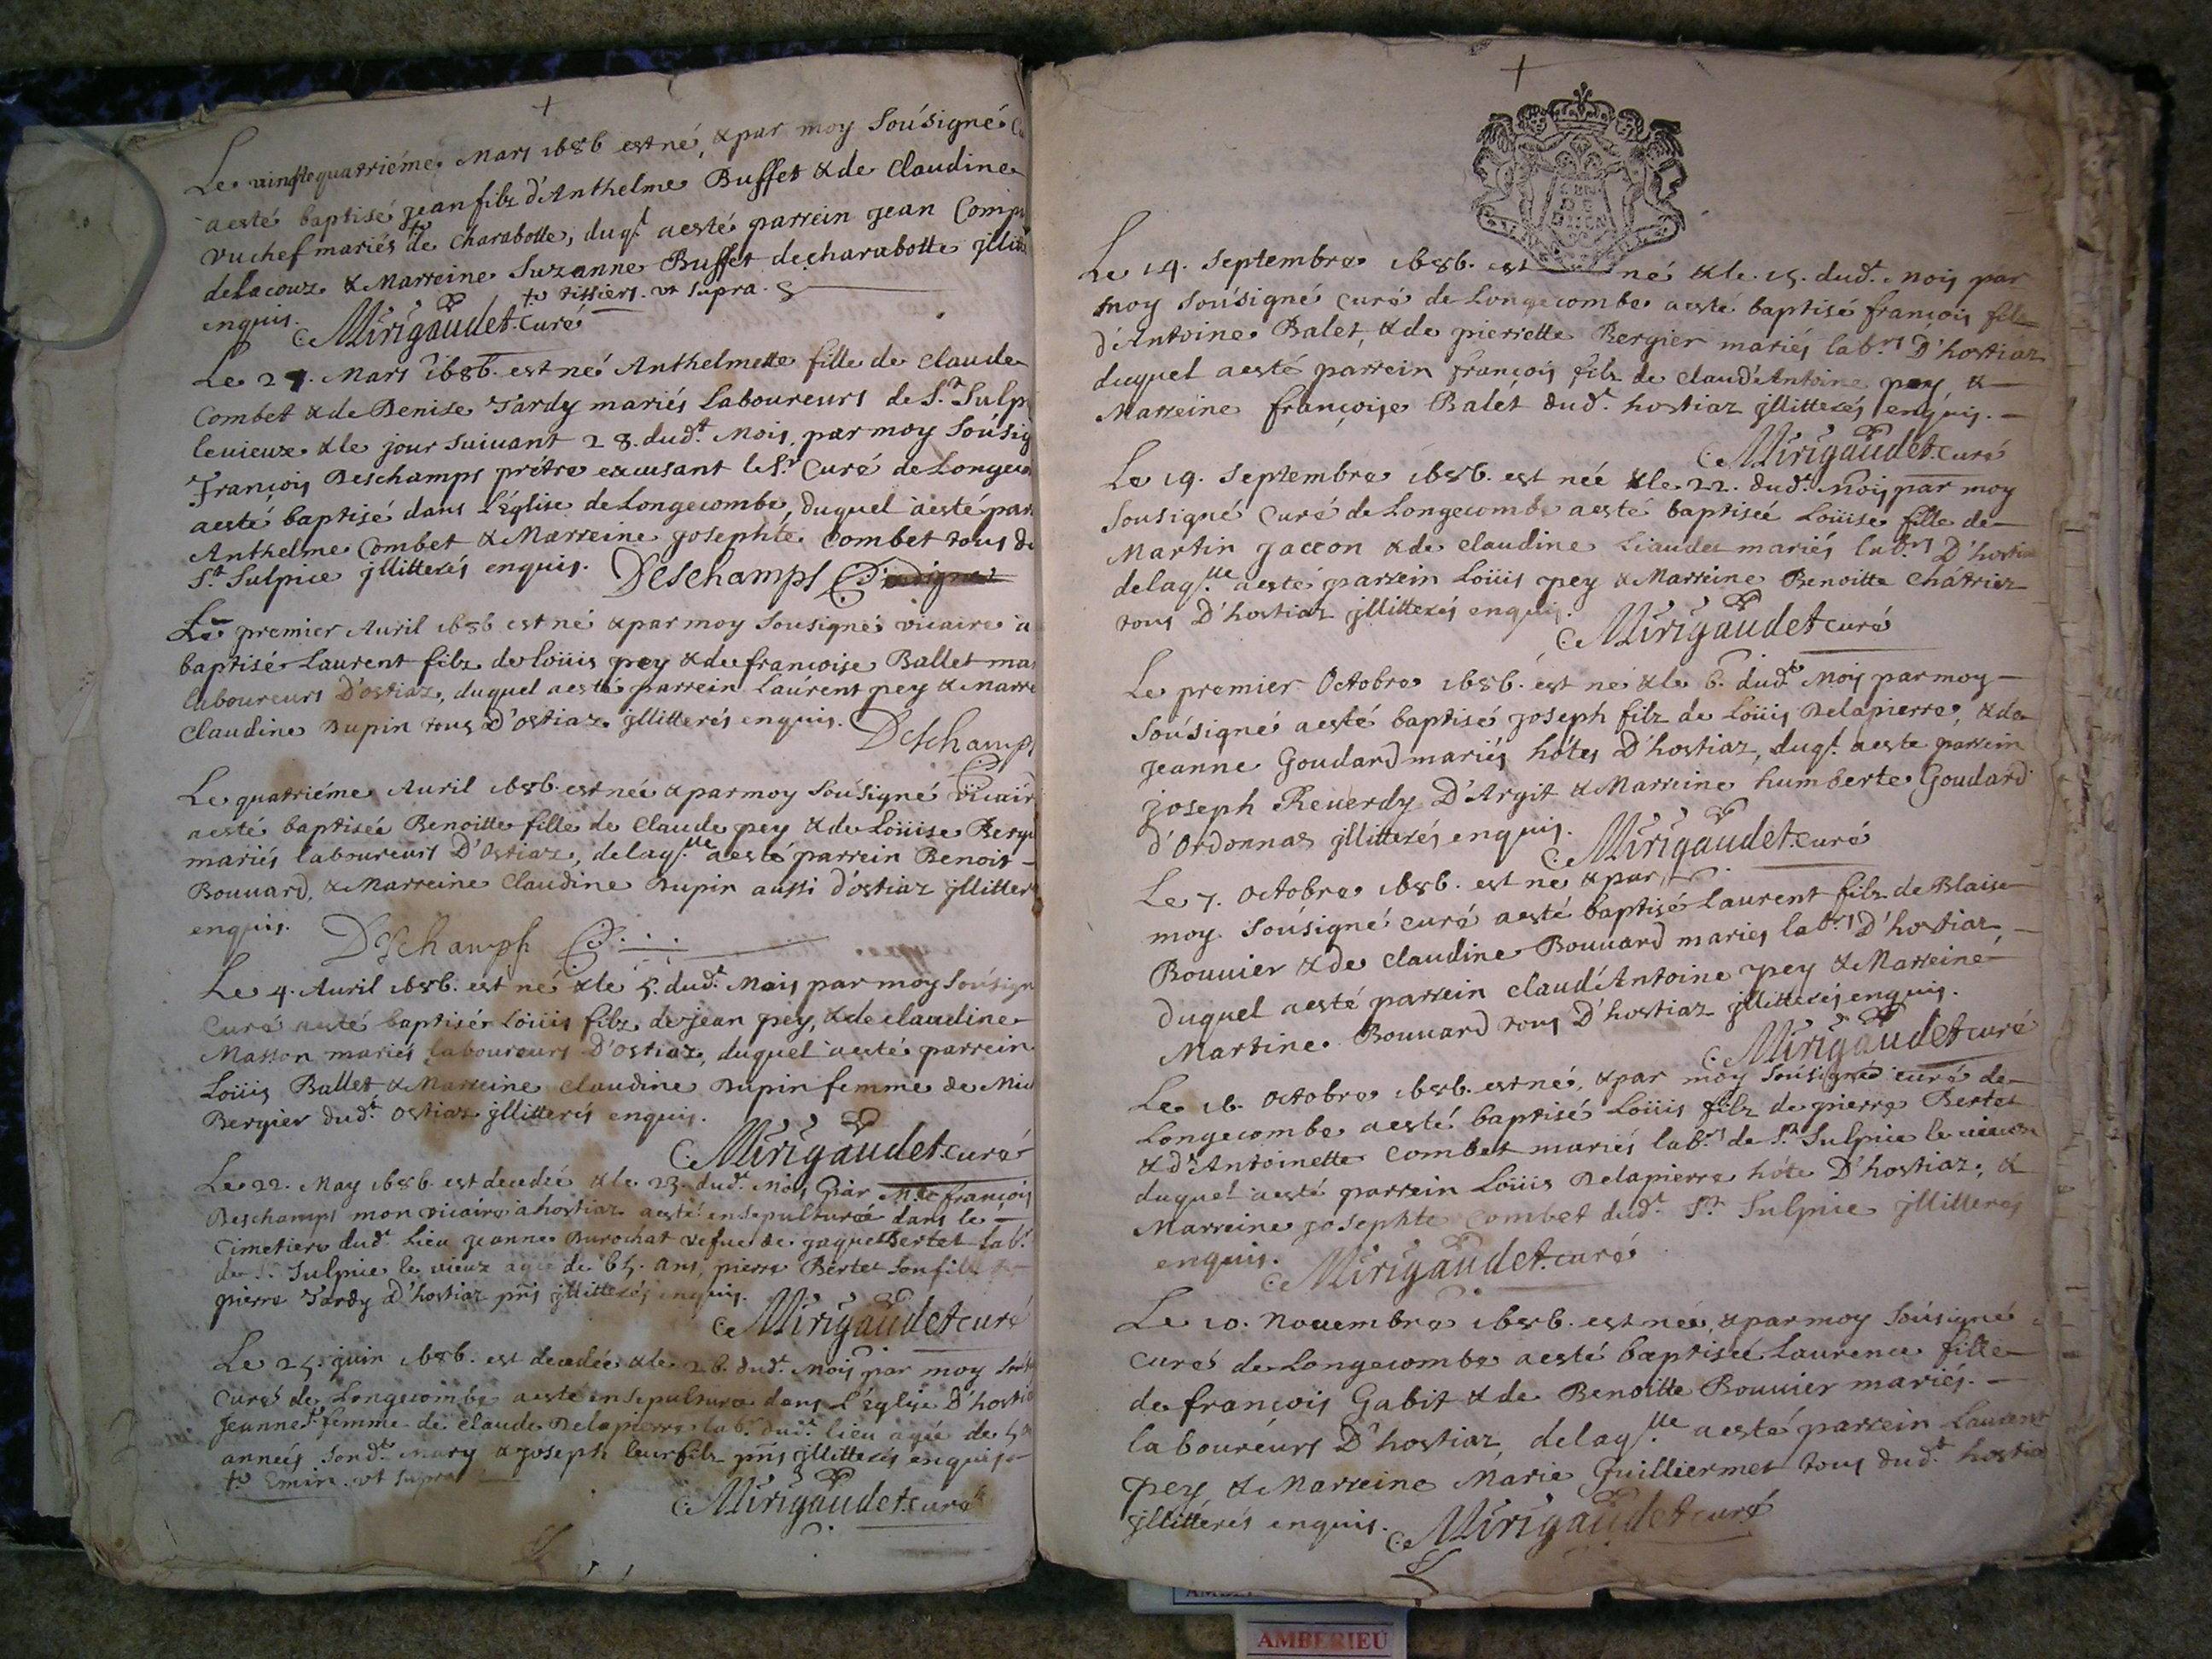 Le vingtequatriéme Mars 1686 est né, & par moy Soúsigné
a esté baptisé Jean filz d'Anthelme Buffet & de Claudine
Vuchef mariés de Charabotte, duq.l a esté parrein Jean
de Lacoux & Marreine Suzanne Buffet de Charabotte jllit
enquis. Mirigaudet. curé
tissiers. vt supra.
Le 27. Mars 1686. est né Anthelmette fille de Claude
Combet & de Denise Tardy mariés Laboureurs de S.t Sulp
le vieux & le jour suivant 28. dud.t Mois, par moy Soúsig
François Deschamps prétre excusant le S.r Curé de Longeco
a esté baptisé dans l'Église de Longecombe, duquel a esté par
Anthelme Combet & Marreine Josephte Combet tous de
S.t Sulpice jllitterés enquis. Deschamps
Le premier Auril 1686 est né & par moy Sousigné vicaire a
baptisé Laurent filz de Loüis pey & de françoise Ballet mar
laboureurs D'ostiaz, duquel a esté parrein Laurent pey & Marre
Claudine Dupin tous D'ostiaz jllitterés enquis.
Deschamps
Le quatriéme Auril 1686. est née & par moy Soúsigné vicair
a esté baptiseé Benoitte fille de Claude pey & de Loüise Bergi
mariés laboureurs D'Ostiaz, de laq.lle a esté parrein Benoit
Bouuard, & Marreine Claudine Dupin aussi d'ostiaz jllitter
enquis. Deschamps
Le 4. Auril 1686. est né & le 5. dud.t Mois par moy Soúsign
Curé a esté baptisé Loüis filz de Jean pey, & de claudine
Masson mariés laboureurs D'ostiaz, duquel a esté parrein
Loüis Ballet & Marreine Claudine Dupin femme de Mic
Bergier dud.t ostiaz jllitterés enquis.
Mirigaudet. curé
Le 22. May 1686. est decedée & le 23. dud.t Mois par M.re françois
Deschamps mon vicaire a hostiaz a esté ensepulturée dans le
Cimetiere dud.t Lieu Jeanne Burochat vefue de Jaques Bertet lab.r
de S.t Sulpice le vieux agée de 65. ans, pierre Bertet son filz &
pierre Tardy D'hostiaz pñs jllitterés enquis.
Mirigaudet curé
Le 25. juin 1686. est decedée & le 26. dud.t Mois par moy Soús
Curé de Longecombe a esté ensepulture dans l'Église D'hostia
Jeanne femme de Claude Delapierre lab.r dud.t lieu agée de
années sond.t mary & Joseph leur filz pñs jllitterés enquis
Emin. vt supra
Mirigaudet. curé
Le 14. Septembre 1686. est né & le 15. dud.t Mois par
moy Soúsigné curé de Longecombe a esté baptisé françois filz
d'Antoine Balet, & de pierrette Bergier mariés lab.rs D'hostiaz
duquel a esté parrein françois filz de claud'Antoine pey &
Marreine françoise Balet dud.t hostiaz jllitterés enquis.
Mirigaudet. curé
Le 19. Septembre 1686. est née & le 22. dud.t Mois par moy
Sousigné Curé de Longecombe a esté baptiseé Loüise fille de
Martin Jaccon & de Claudine mariés lab.rs D'hostiaz
de laq.lle a esté parrein Loüis pey & Marreine Benoitte Chátriez
tous D'hostiaz jllitterés enquis.
Mirigaudet curé
Le premier Octobre 1686. est né & le 6. dud.t Mois par moy
Soúsigné a esté baptisé Joseph filz de Loüis Delapierre, & de
Jeanne Goudard mariés hótes D'hostiaz, duq.l a esté parrein
Joseph Reuerdy D'Argit & Marreine humberte Goudard
d'Ordonnas jllitterés enquis.
Mirigaudet. curé
Le 7. Octobre 1686. est né & par
moy Soúsigné curé a esté baptisé Laurent filz de Blaise
Bouuier & de Claudine Bouuard mariés lab.rs D'hostiaz,
duquel a esté parrein claud'Antoine pey & Marreine
Martine Bouuard tous D'hostiaz jllitterés enquis.
Mirigaudet curé
Le 16. Octobre 1686. est né, & par moy Soúsigné curé de
Longecombe a esté baptisé Loüis filz de pierre Bertet
& d'Antoinette Combet mariés lab.rs de S.t Sulpice le vieux
duquel a esté parrein Loüis Delapierre hóte D'hostiaz, &
Marreine Josephte Combet dud.t S.t Sulpice jllitterés
enquis. Mirigaudet. curé
Le 10. Nouembre 1686. est née, & par moy Soúsigné
curé de Longecombe a esté baptiseé Laurence fille
de françois Gabit & de Benoitte Bouuier mariés
laboureurs D'hostiaz, de laq.lle a esté parrein Laurent
pey & Marreine Marie Guilliermet tous dud.t hostia
jllitterés enquis. Mirigaudet curé
AMBERIEU